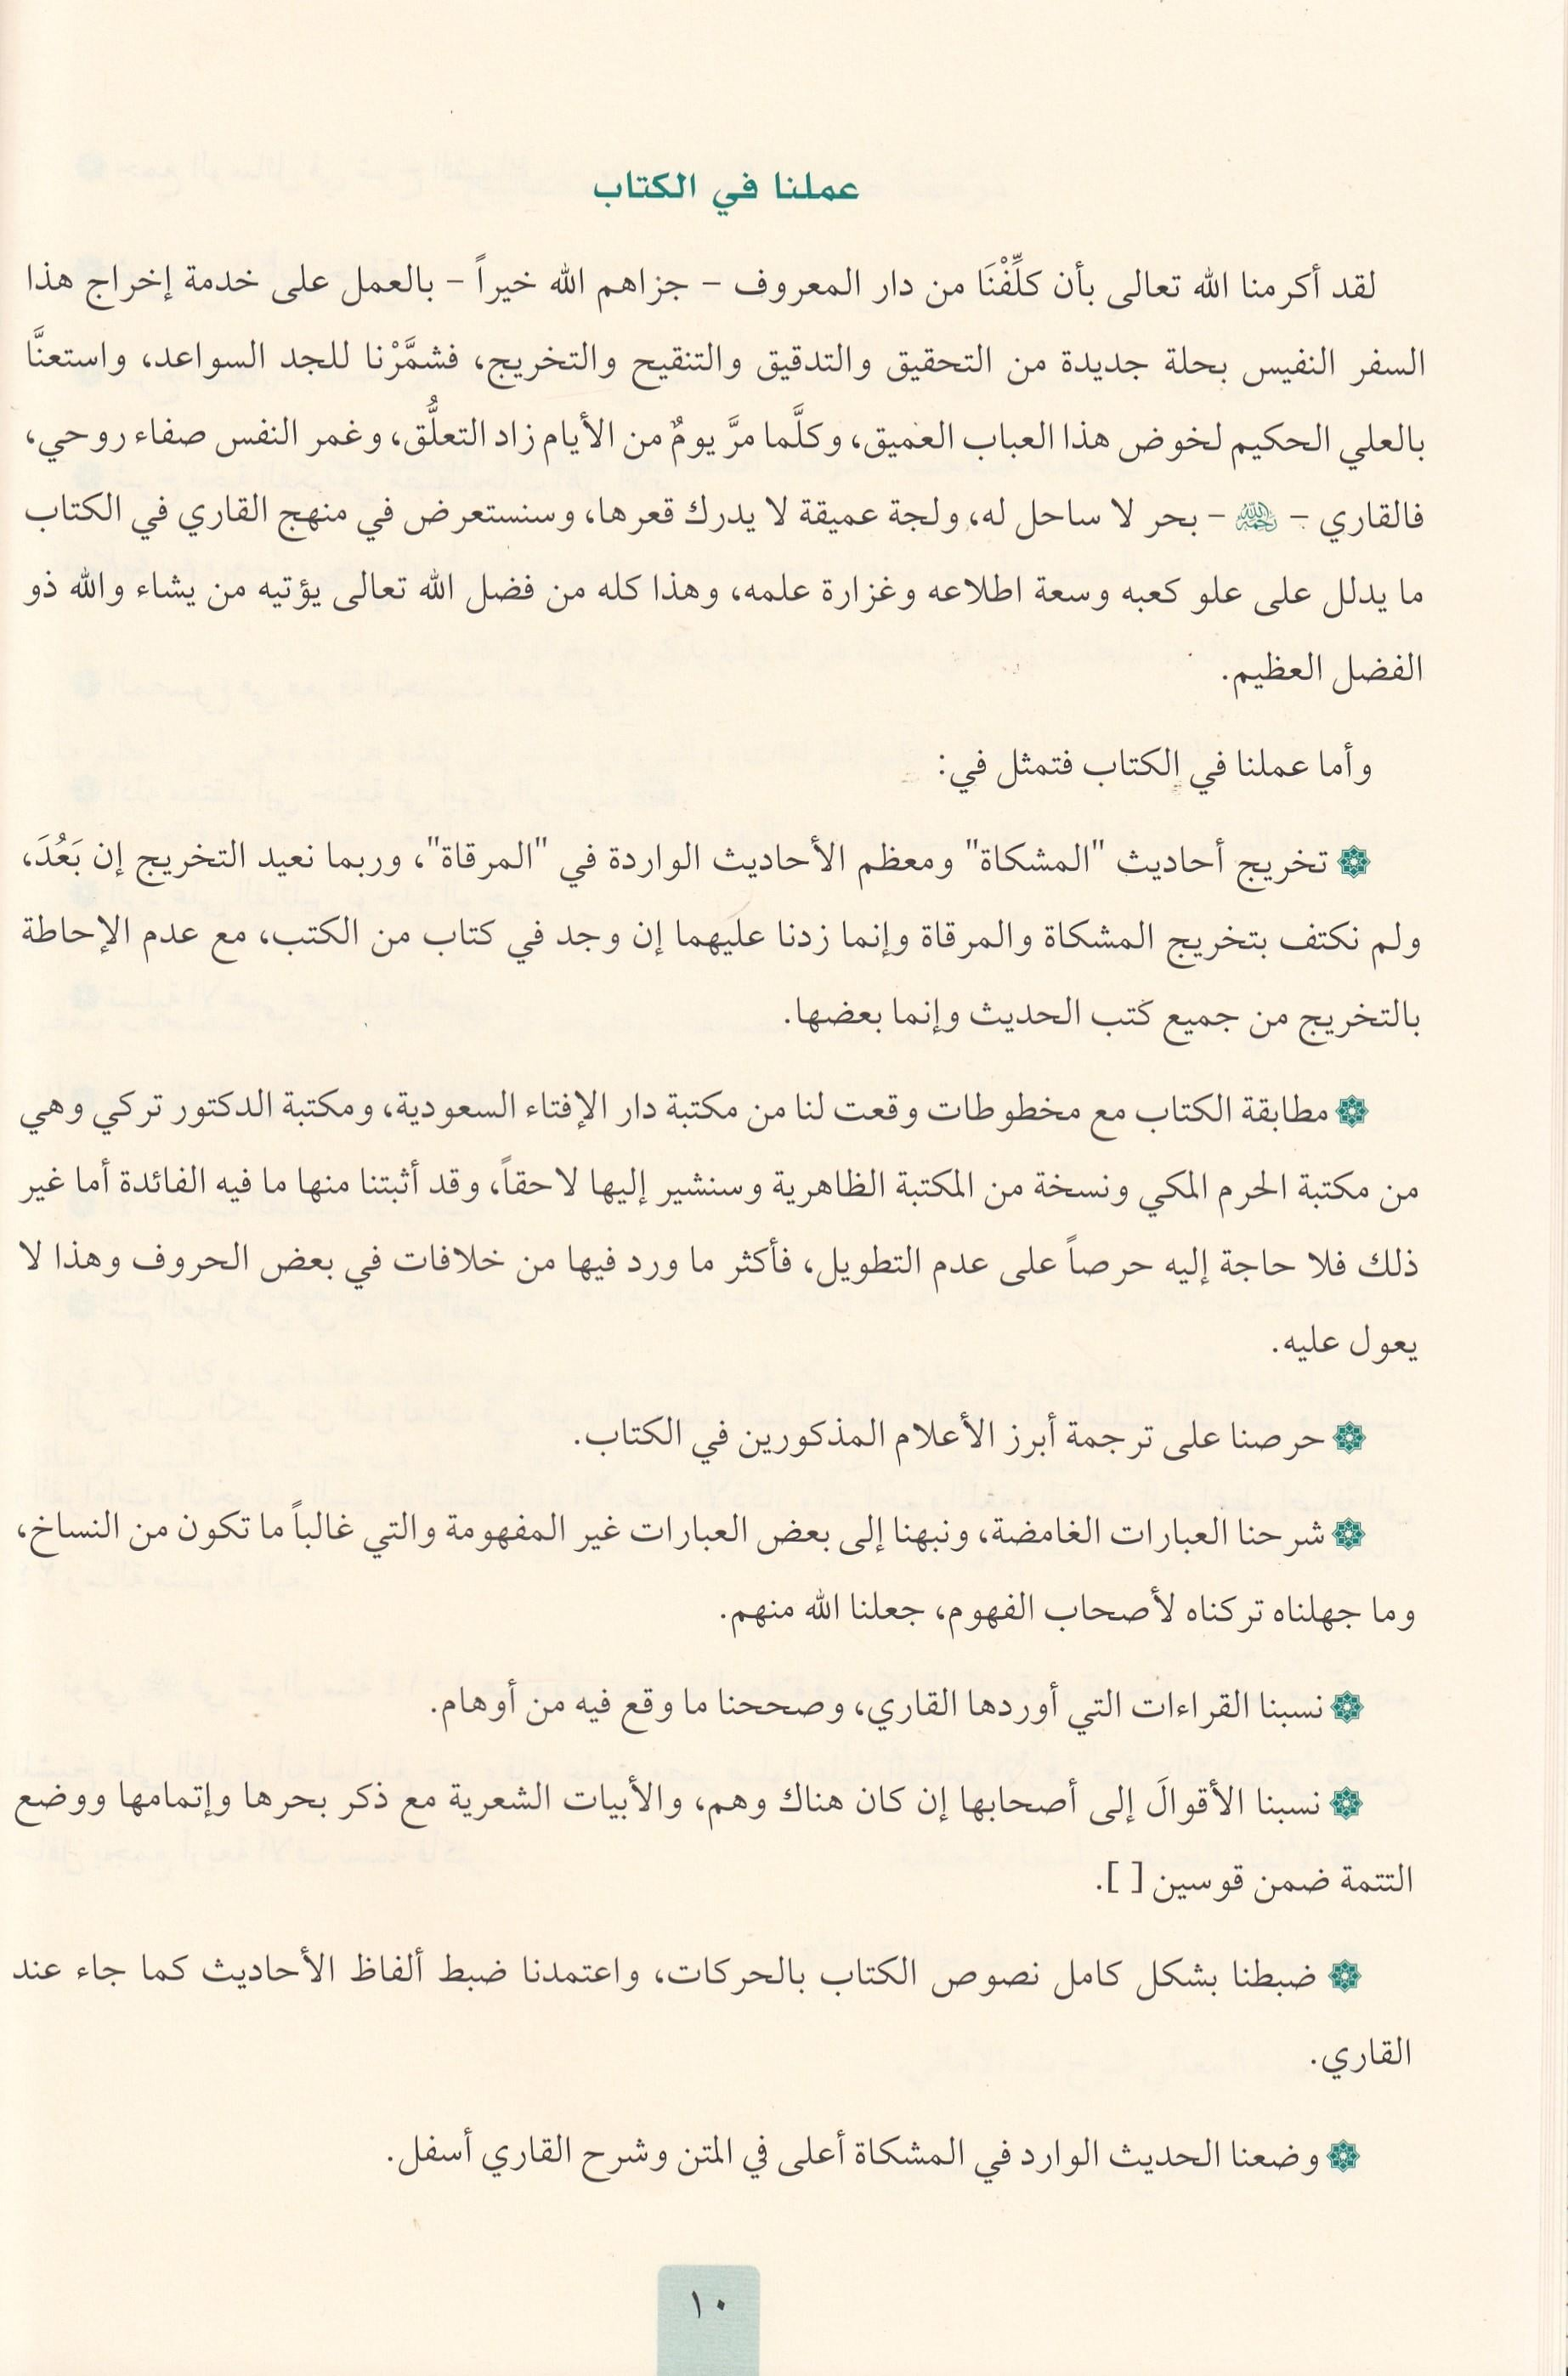 عملنا في الكتاب
لقد أكرمنا الله تعالى بأن كلِّفْنَا من دار المعروف – جزاهم الله خيراً – بالعمل على خدمة إخراج هذا
السفر النفيس بحلة جديدة من التحقيق والتدقيق والتنقيح والتخريج، فشمَّرْنا للجد السواعد، واستعنَّا
بالعلي الحكيم لخوض هذا العباب العميق، وكلَّما مرَّ يومٌ من الأيام زاد التعلُّق، وغمر النفس صفاء روحي،
فالقاري – رحمه الله – بحر لا ساحل له، ولجة عميقة لا يدرك قعرها، وسنستعرض في منهج القاري في الكتاب
ما يدلل على علو كعبه وسعة اطلاعه وغزارة علمه، وهذا كله من فضل الله تعالى يؤتيه من يشاء والله ذو
الفضل العظيم.
وأما عملنا في الكتاب فتمثل في:
تخريج أحاديث "المشكاة" ومعظم الأحاديث الواردة في "المرقاة"، وربما نعيد التخريج إن بَعُدَ،
ولم نكتف بتخريج المشكاة والمرقاة وإنما زدنا عليهما إن وجد في كتاب من الكتب، مع عدم الإحاطة
بالتخريج من جميع كتب الحديث وإنما بعضها.
مطابقة الكتاب مع مخطوطات وقعت لنا من مكتبة دار الإفتاء السعودية، ومكتبة الدكتور تركي وهي
من مكتبة الحرم المكي ونسخة من المكتبة الظاهرية وسنشير إليها لاحقاً، وقد أثبتنا منها ما فيه الفائدة أما غير
ذلك فلا حاجة إليه حرصاً على عدم التطويل، فأكثر ما ورد فيها من خلافات في بعض الحروف وهذا لا
يعول عليه.
حرصنا على ترجمة أبرز الأعلام المذكورين في الكتاب.
شرحنا العبارات الغامضة، ونبهنا إلى بعض العبارات غير المفهومة والتي غالباً ما تكون من النساخ،
وما جهلناه تركناه لأصحاب الفهوم، جعلنا الله منهم.
نسبنا القراءات التي أوردها القاري، وصححنا ما وقع فيه من أوهام.
نسبنا الأقوالَ إلى أصحابها إن كان هناك وهم، والأبيات الشعرية مع ذكر بحرها وإتمامها ووضع
التتمة ضمن قوسين [ ].
ضبطنا بشكل كامل نصوص الكتاب بالحركات، واعتمدنا ضبط ألفاظ الأحاديث كما جاء عند
القاري.
وضعنا الحديث الوارد في المشكاة أعلى في المتن وشرح القاري أسفل.
١٠